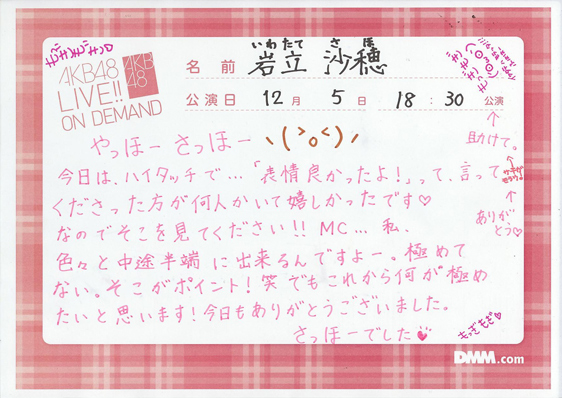 AKB48
LIVE!!
ON DEMAND
AKB
48
いわたて さほ
名前 岩立 沙穂
公演日 12月 5日 18:30 公演
やっほー さっほー
\(>o<)/
今日は、ハイタッチで…「表情良かったよ!」って、言って
くださった方が何人かいて嬉しかったです♡
なのでそこを見てください!! MC… 私、
色々と中途半端に出来るんですよー。極めて
ない。そこがポイント!笑でもこれから何が極め
たいと思います!今日もありがとうございました。
さっほーでした♡
↑
助けて。
↑
ありが
とう♡
もっぎもぎ♡
DMM.com